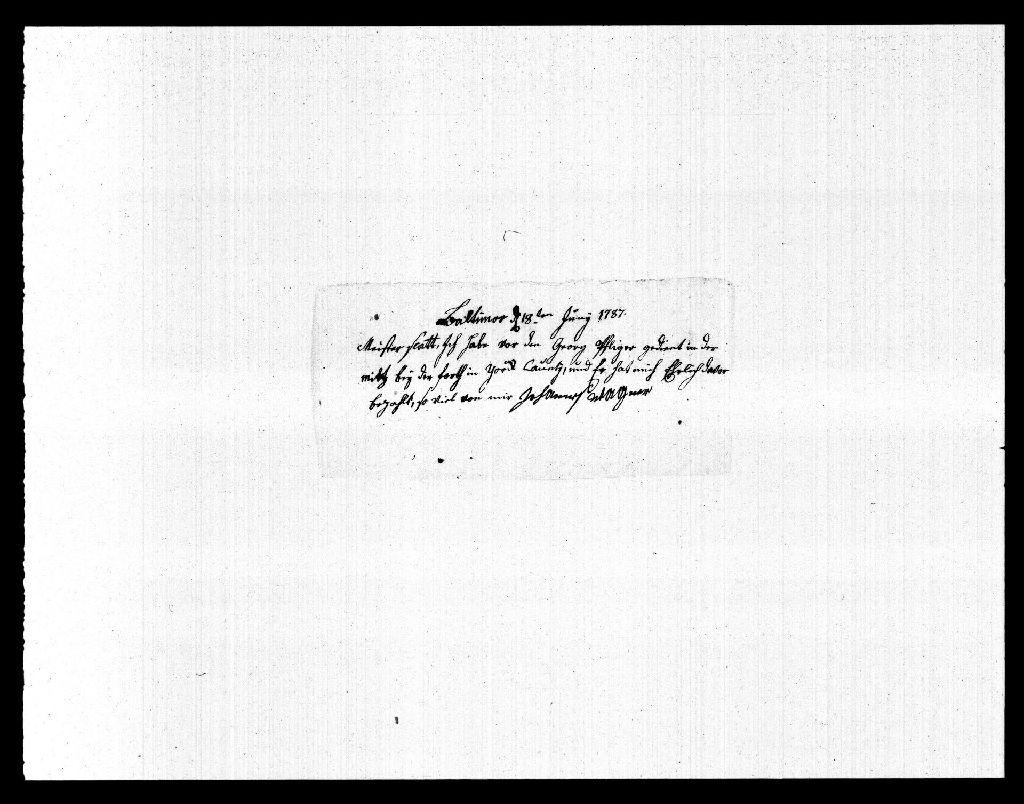 Baltimor d 18ten Juny 1787.
Meister scott. Ich habe vor den Georg Pfliger gedient in der
militz bey der forth in Yorck Caunty, und Er hat mich Ehrlich davor
bezahlt, so viel von mir Johannes Wagner